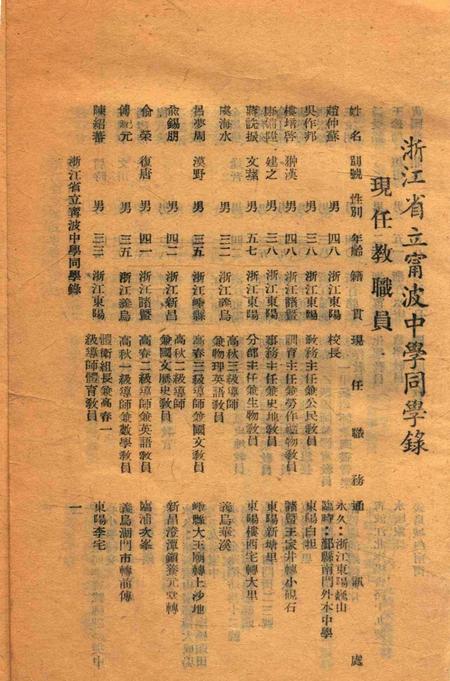 浙江省立甯波中學同學錄
現任教職員
姓名 別號 性別 年齡 籍貫 現任職務 通訊處
趙仲蘇 男 四八 浙江東陽 校長 永久：浙江東陽巍山
臨時：鄞縣南門外本中學
吳作邦 男 三八 浙江東陽 教務主任兼公民教員 東陽白坦
樓培啓 翀漢 男 四八 浙江諸暨 訓育主任兼勞作礦物教員 諸暨王家井轉小硯石
建之 男 三八 浙江東陽 事務主任兼史地教員 東陽新塘里
文藻 男 五七 浙江東陽 分部主任兼生物教員 東陽樓西宅轉大里
虞海水 男 三二 浙江義烏 高秋三級導師
兼物理英語教員 義烏華溪
呂夢周 漠野 男 三五 浙江嵊縣 高春三級導師兼國文教員 嵊縣大王廟轉上沙地
俞錫朋 男 四二 浙江新昌 高秋二級導師
兼國文歷史教員 新昌澄潭鎮養元堂轉
俞榮 復唐 男 四一 浙江諸暨 高春二級導師兼英語教員 臨浦次峯
傅紀元 男 三五 浙江義烏 高秋一級導師兼數學教員 義烏湖門市轉前傅
陳紹蕃 男 三三 浙江東陽 體衛組長兼高春一
級導師體育教員 東陽李宅
浙江省立甯波中學同學錄 一